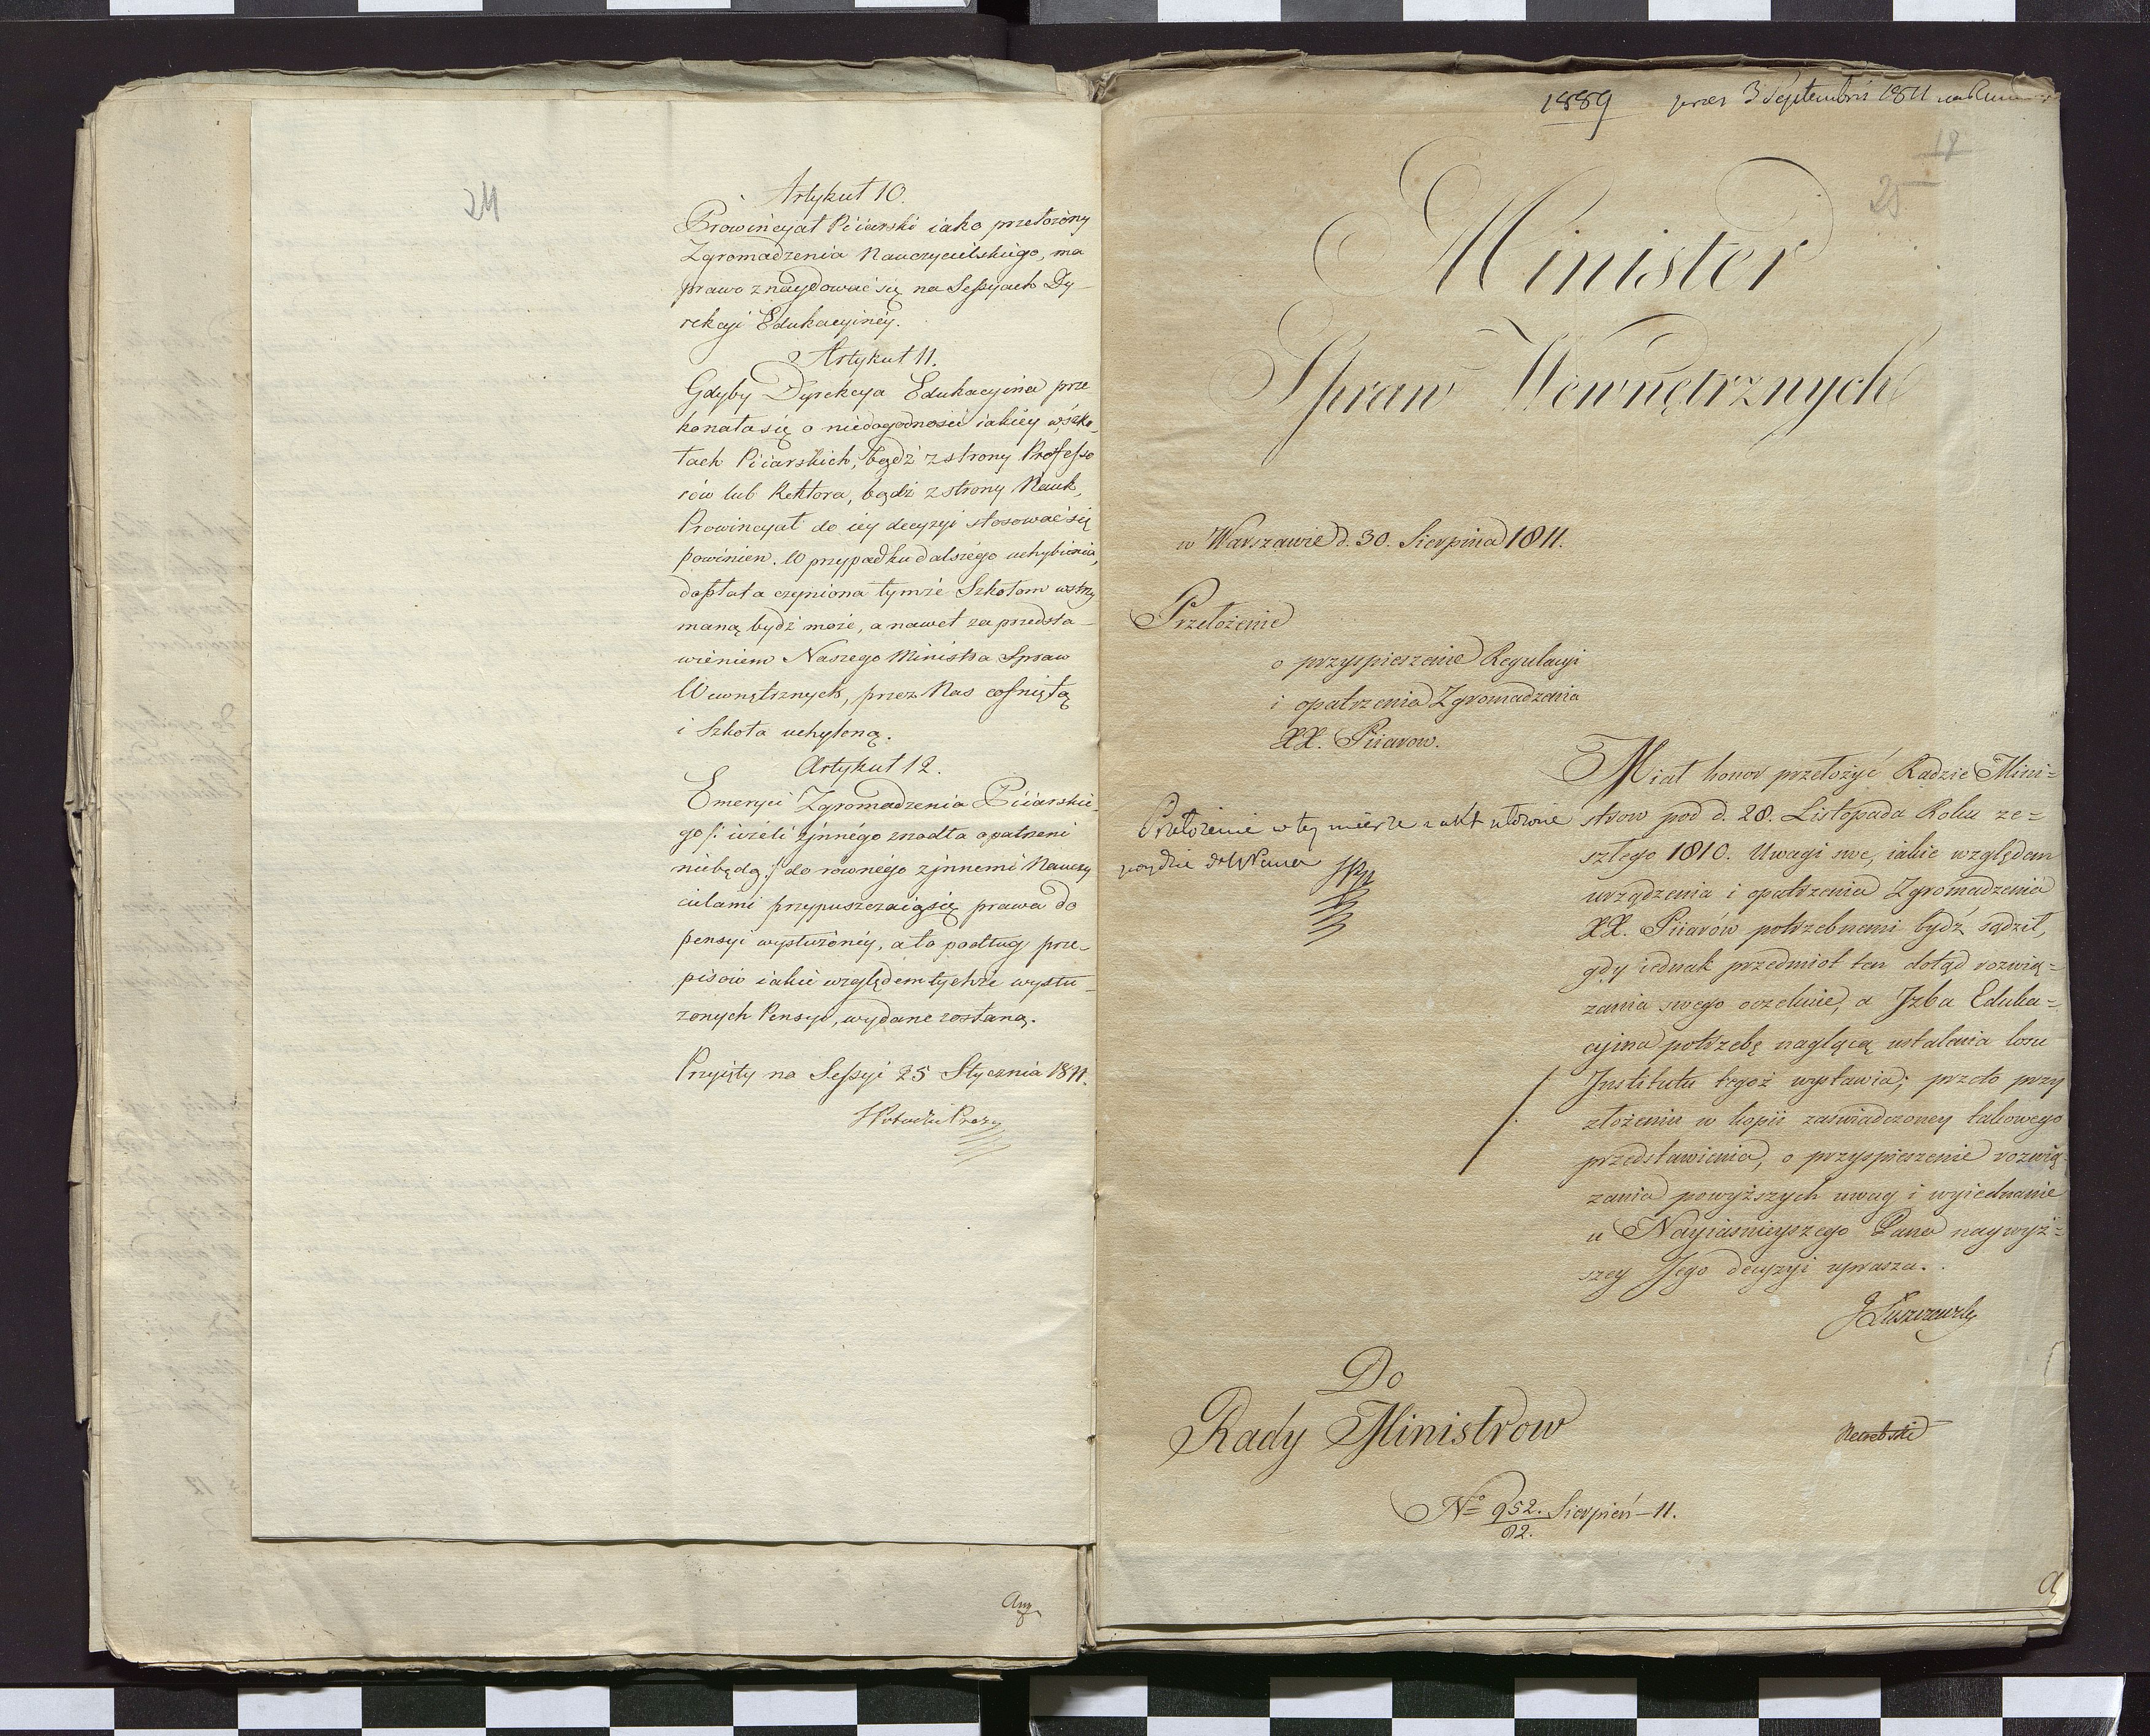 24
Artykuł 10.
Prowincyał Piiarski iako przełożony
Zgromadzenia Nauczycielskiego, ma
prawo znaydować się na Sessyach Dy-
rekcyi Edukacyiney.
Artykuł 11.
Gdyby Dyrekcya Edukacyina prze
konała się o niedogodności iakiey w szko-
łach Piiarskich, bądź z strony Professo
rów lub Rektora, bądź z strony Nauk,
Prowincyał do iey decyzyi stosować się
powinien. W przypadku dalszego uchybienia,
dopłata czyniona tymże Szkołom wstrzy
maną bydź może, a nawet za przedsta-
wieniem Naszego Ministra Spraw
Wewnętrznych, przez Nas cofniętą
i Szkoła uchyloną.
Artykuł 12.
Emeryci Zgromadzenia Piiarskie-
go /: ieżeli z jnnego źrzodła opatrzeni
niebędą :/ do rownego z jnnemi Nauczy
cielami przypuszczaią się prawa do
pensyi wysłużoney, a to podług prze-
pisow iakie względem tychże wysłu-
żonych Pensyi, wydane zostaną.
Przyięty na Sessyi 25 Stycznia 1811.
1889 przez 3 Septembris 1811
19
25
Minister
Spraw Wewnętrznych
w Warszawie d. 30. Sierpnia 1811.
Przełożenie
o przyspieszenie Regulacyi
i opatrzenia Zgromadzenia
XX. Piiarow.
Przełożenie w tey mierze
Miał honor przełożyć Radzie Mini=
strow pod d. 28. Listopada Roku ze=
szłego 1810. Uwagi swe, iakie względem
urządzenia i opatrzenia Zgromadzenia
XX. Piiarów potrzebnemi bydź sądził,
gdy iednak przedmiot ten dotąd rozwią=
zania swego oczekuie, a Jzba Eduka=
cyina potrzebę naglącą ustalenia losu
Jnstitutu tegoż wystawia; przeto przy
złożeniu w kopii zaświadczoney takowego
przedstawienia, o przyspieszenie rozwią
zania powyższych uwag i wyiednanie
u Nayiaśnieyszego Pana naywyż=
szey Jego decyzyi uprasza.
J Łuszczewski
Do
Rady Ministrow
No 952. Sierpień - 11.
92.